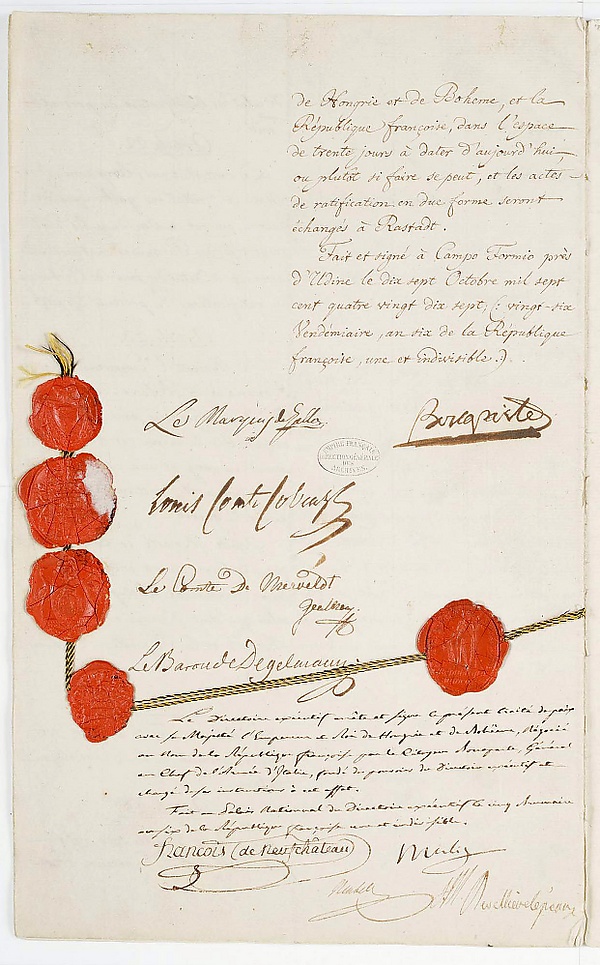 de Hongrie et de Boheme, et la
République françoise, dans l'espace
de trente jours à dater d'aujourd'hui,
ou plutôt si faire se peut, et les actes
de ratification en due forme seront
échangés à Rastadt.
Fait et signé à Campo Formio près
d'Udine le dix sept Octobre mil sept
cent quatre vingt dix sept, (: vingt-six
Vendémiaire, an six de la République
françoise, une et indivisible.:)
Le Marquis de Gallo
Bonaparte
EMPIRE FRANÇAIS
DIRECTION GÉNÉRALE
DES
ARCHIVES
Louis Comte Cobenzl
Le Comte De Merveldt
Le Baron de Degelmann
Le Directoire exécutif arrête et signe le présent traité de paix
avec sa Majesté l'Empereur et Roi de Hongrie et de Bohême, négocié
au Nom de la République françoise par le Citoyen Bonaparte, Général
en Chef de l'Armée d'Italie, fondé de pouvoirs du Directoire exécutif et
chargé de ses instructions à cet effet.
Fait au Palais National du Directoire exécutif le cinq Brumaire
an six de la République françoise une et indivisible.
François (de Neufchâteau)
Merlin